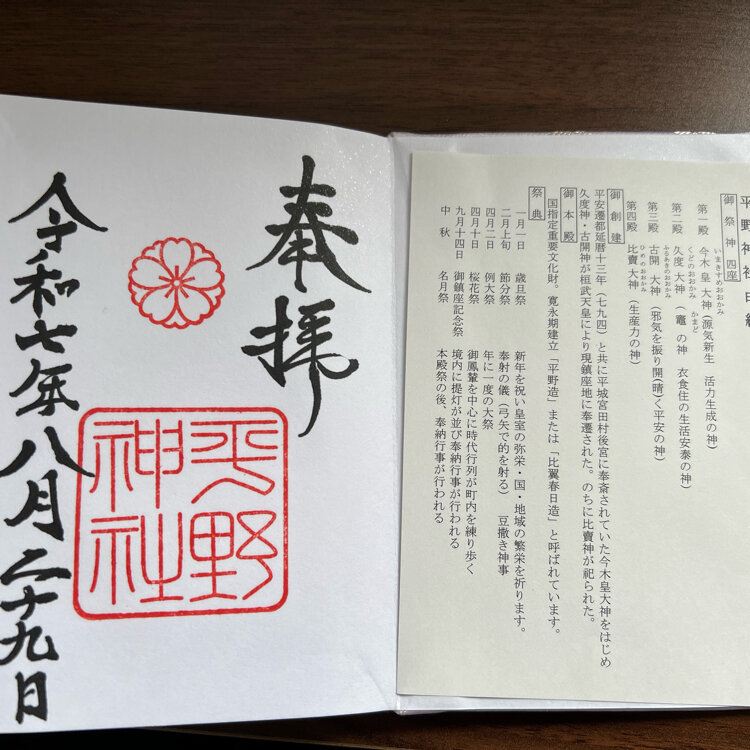 平野神社由緒
御祭神四座
いまきすめおおかみ
第一殿 今木皇大神(源気新生 活力生成の神)
くどのおおかみ かまど
第二殿 久度大神(竈の神 衣食住の生活安泰の神)
ふるあきのおおかみ
第三殿 古開大神(邪気を振り開(晴)く平安の神)
ひめのおおかみ
第四殿 比賣大神(生産力の神)
御創建
平安遷都延暦十三年(七九四)と共に平城宮田村後宮に奉斎されていた今木皇大神をはじめ
久度神・古開神が桓武天皇により現鎮座地に奉遷された。のちに比賣神が祀られた。
御本殿
国指定重要文化財。寛永期建立「平野造」または「比翼春日造」と呼ばれています。
祭典
一月一日 歳旦祭 新年を祝い皇室の弥栄・国・地域の繁栄を祈ります。
二月上旬 節分祭 奉射の儀(弓矢で的を射る) 豆撒き神事
四月二日 例大祭 年に一度の大祭
四月十日 桜花祭 御鳳輦を中心に時代行列が町内を練り歩く
九月十四日 御鎮座記念祭 境内に提灯が並び奉納行事が行われる
中秋 名月祭 本殿祭の後、奉納行事が行われる
奉拝
平野
神社
令和七年八月二十九日